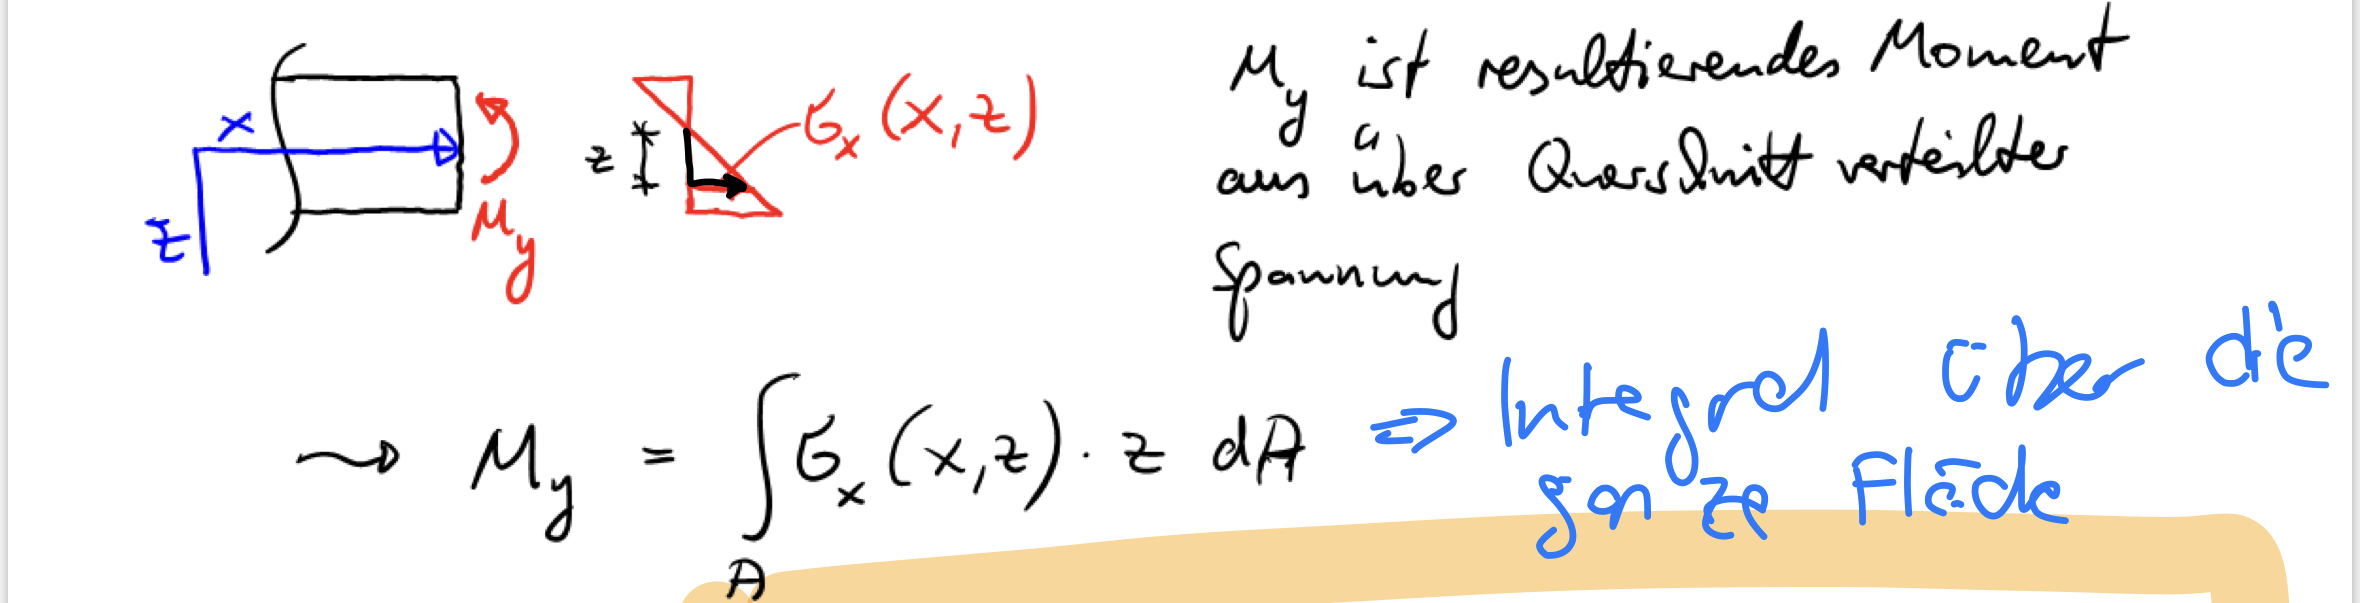 x
z
M_y
z
σ_x (x,z)
M_y ist resultierendes Moment
aus über Querschnitt verteilter
Spannung
⇝ M_y = ∫_A σ_x (x,z) · z dA ⇒ Integral über die
ganze Fläche